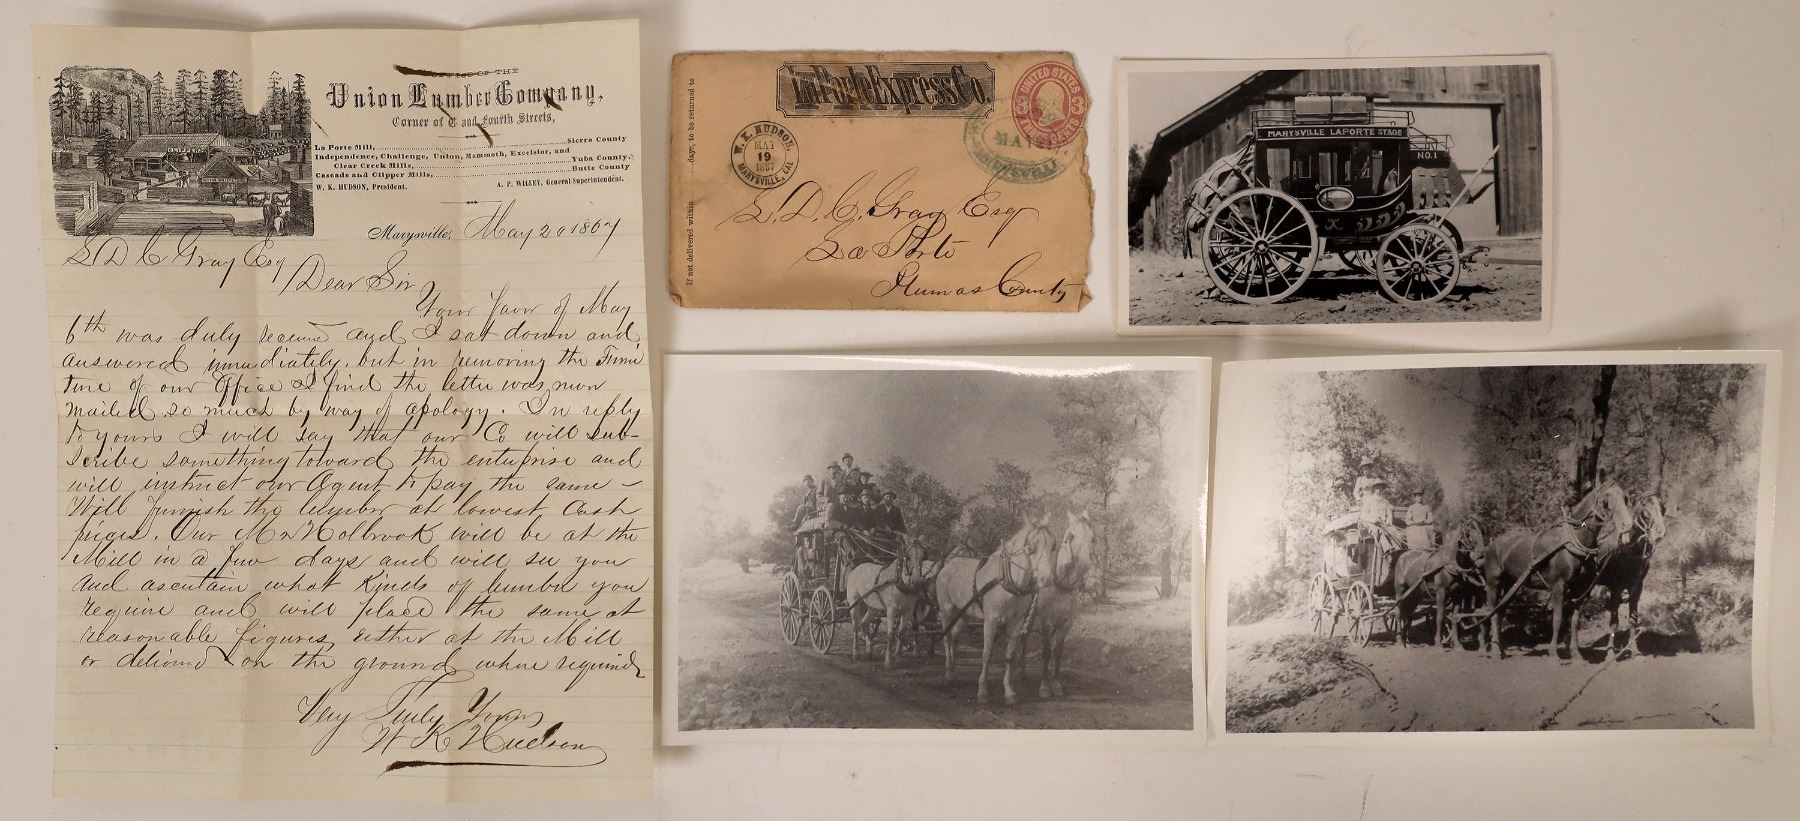 OFFICE OF THE
Union Lumber Company,
Corner of C and Fourth Streets,
La Porte Mill, Sierra County
Independence, Challenge, Union, Mammoth, Excelsior, and
Clear Creek Mills, Yuba County.
Cascade and Clipper Mills, Butte County
W. K. HUDSON, President. A. P. WILLEY, General Superintendent.
Marysville, May 20 1867
S D C Gray Esq
Dear Sir
Your favor of May
6th was duly received and I sat down and
answered immediately, but in removing the Furni
ture of our Office I find the letter was never
mailed so much by way of apology. In reply
to yours I will say that our Co will sub-
scribe something toward the enterprise and
will instruct our Agent to pay the same –
Will furnish the lumber at lowest Cash
prices. Our Mr Holbrook will be at the
Mill in a few days and will see you
and ascertain what Kinds of lumber you
require and will place the same at
reasonable figures, either at the Mill
or delivered on the ground where required
Very Truly Yours
W K Hudson
If not delivered within days, to be returned to
La Porte Express Co.
UNITED STATES
THREE CENTS
W. K. HUDSON,
MAY
19
1867
MARYSVILLE, CAL
MAY
S. D. C. Gray Esq
La Porte
Plumas County
MARYSVILLE LAPORTE STAGE
NO. 1